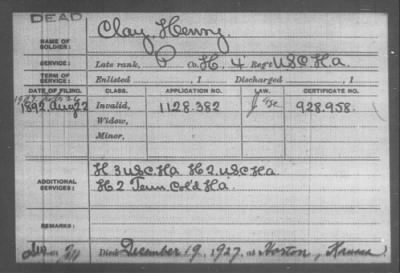 DEAD
NAME OF SOLDIER: Clay, Henry.
SERVICE: Late rank, P Co. H, 4 Reg't U.S.C.H.a.
TERM OF SERVICE: Enlisted , 1 Discharged , 1
DATE OF FILING. CLASS. APPLICATION NO. LAW. CERTIFICATE NO.
1892. Aug 22 Invalid, 1128.382 928.958.
Widow,
Minor,
ADDITIONAL SERVICES: H 3 U.S.C.H.a. H 2 U.S.C.H.a.
H 2 Tenn Col'd H.a.
REMARKS:
Died December 19, 1927, at Norton, Kansas